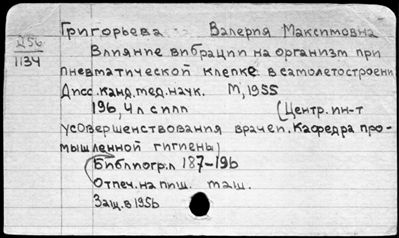 Д56
1134
Григорьева Валерия Максимовна
Влияние вибрации на организм при
пневматической клепке в самолетостроени
Дисс. канд. мед. наук. М, 1955
196, 4 л с илл (Центр. ин-т
усовершенствования врачей. Кафедра про-
мышленной гигиены)
(Библиогр. л 187-196
Отпеч. на пиш. маш.
Защ. в 1956